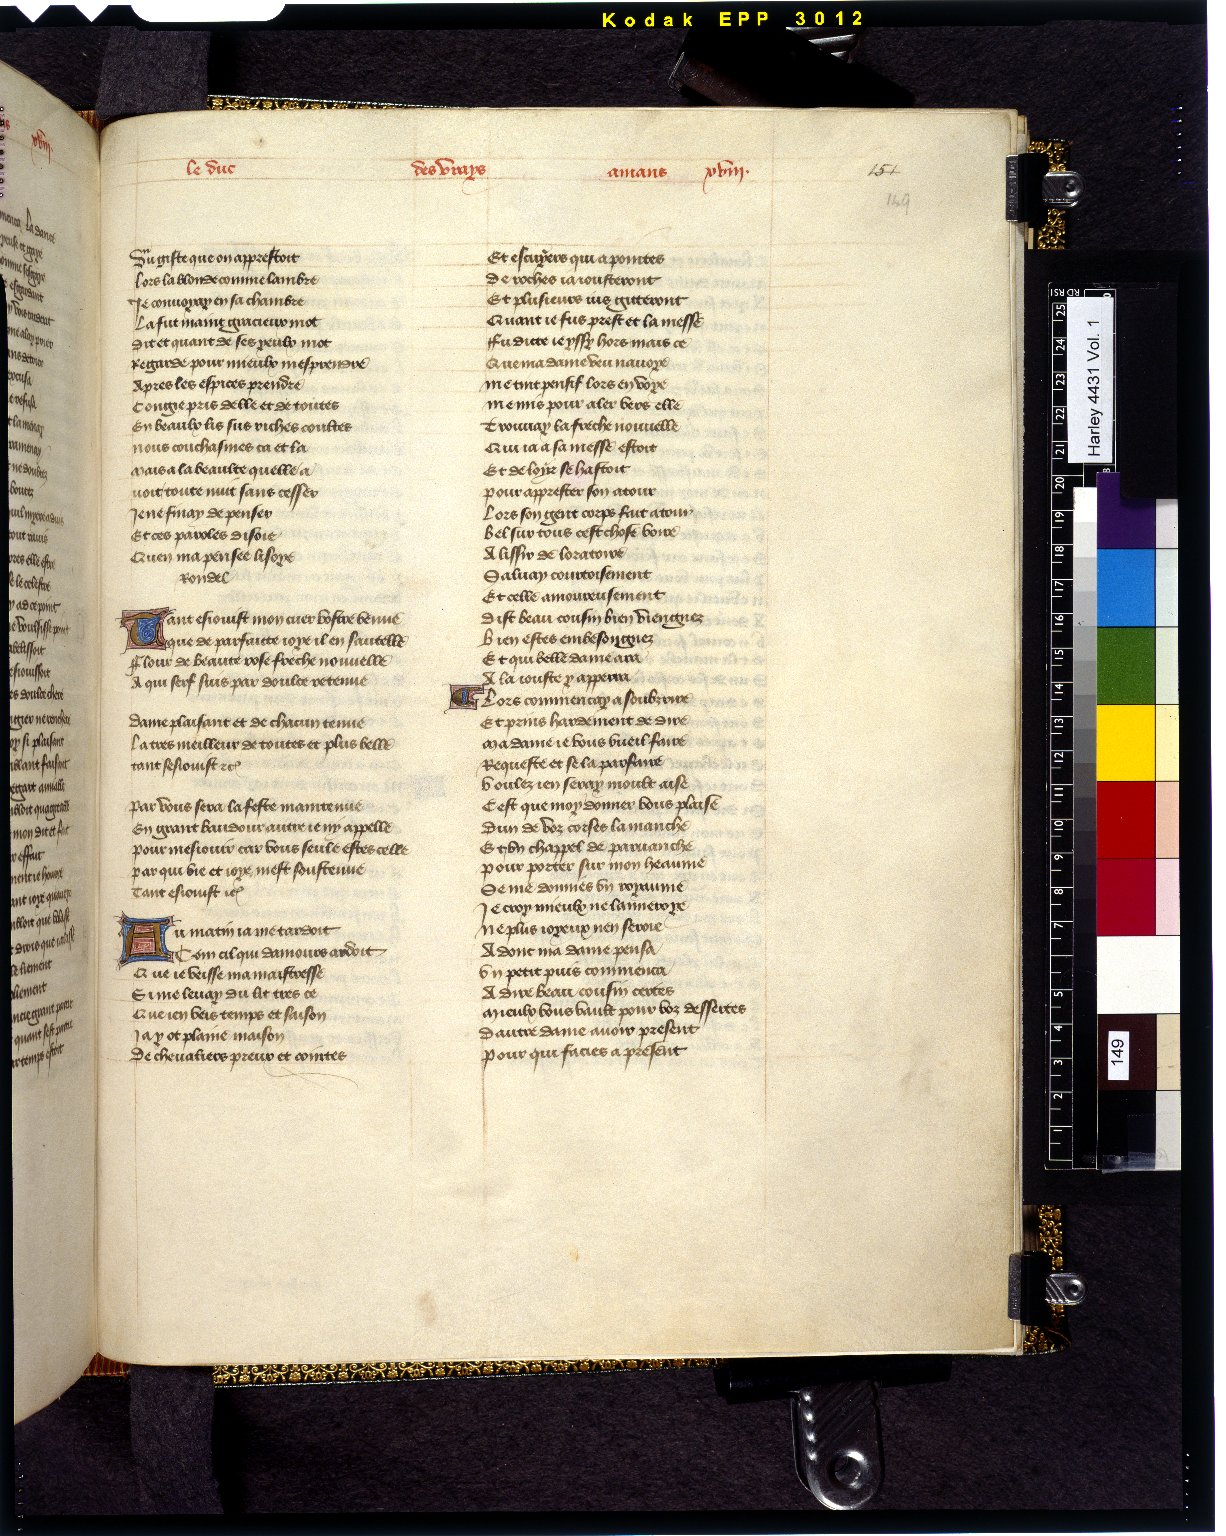 Kodak EPP 3012
le duc des vrays amans xviii.
151
149
Du giste que on apprestoit
Lors la blonde comme lambre
Je convoyay en sa chambre
La fut maint gracieux mot
Dit et quant de ses yeulx mot
Regarde pour mieulx mesprendre
Apres les espices prendre
Congie pris delle et de toutes
En beaulx lis sus riches coultes
nous couchasmes ca et la
mais a la beaulte quelle a
voit toute nuit sans cesser
Je ne finay de penser
Et ces paroles disoie
Quen ma pensee lisoye
Rondel
Tant esiouist mon cuer vostre venue
que de parfaicte ioye il en sautelle
Flour de beaute rose freche nouvelle
A qui serf suis par doulce retenue
Dame plaisant et de chacun tenue
La tres meilleur de toutes et plus belle
tant sesiouist etc
Par vous sera la feste maintenue
En grant baudour autre ie ny appelle
Pour mesiouir car vous seule estes celle
Par qui vie et ioye mest soustenue
Tant esiouist etc
Au matin ia me tardoit
Com cil qui damours ardoit
Que ie veisse ma maistresse
Si me levay du lit tres ce
Que ien veis temps et saison
Ja y ot plaine maison
De chevaliers preux et cointes
Et escuyers qui a pointes
De roches ia iousteront
Et plusieurs ius gitteront
Quant ie fus prest et la messe
Fu dicte ie yssy hors mais ce
Que ma dame veu navoye
me tint pensif lors en voye
me mis pour aler vers elle
Trouvay la freche nouvelle
Qui ia a sa messe estoit
Et de loyr se hastoit
pour apprester son atour
Lors son gent corps fait a tour
bel sur tous cest chose voire
A lissir de loratoire
Saluay courtoisement
Et celle amoureusement
dist beau cousin bien viengniez
Bien estes embesongniez
Et qui belle dame ara
A la iouste y apperra
Lors commencay a soubzrire
Et prins hardement de dire
ma dame ie vous vueil faire
Requeste et se la parfaire
Voulez ien seray moult aise
Cest que moy donner vous plaise
Dun de voz corses la manche
Et un chappel de parvanche
pour porter sur mon heaume
Se me donnies un royaume
Je croy mieulx ne lameroye
ne plus ioyeux nen seroie
Adonc ma dame pensa
Un petit puis commenca
A dire beau cousin certes
mieulx vous vault pour voz dessertes
Dautre dame avoir present
pour qui facies a present
Harley 4431 Vol. 1
149